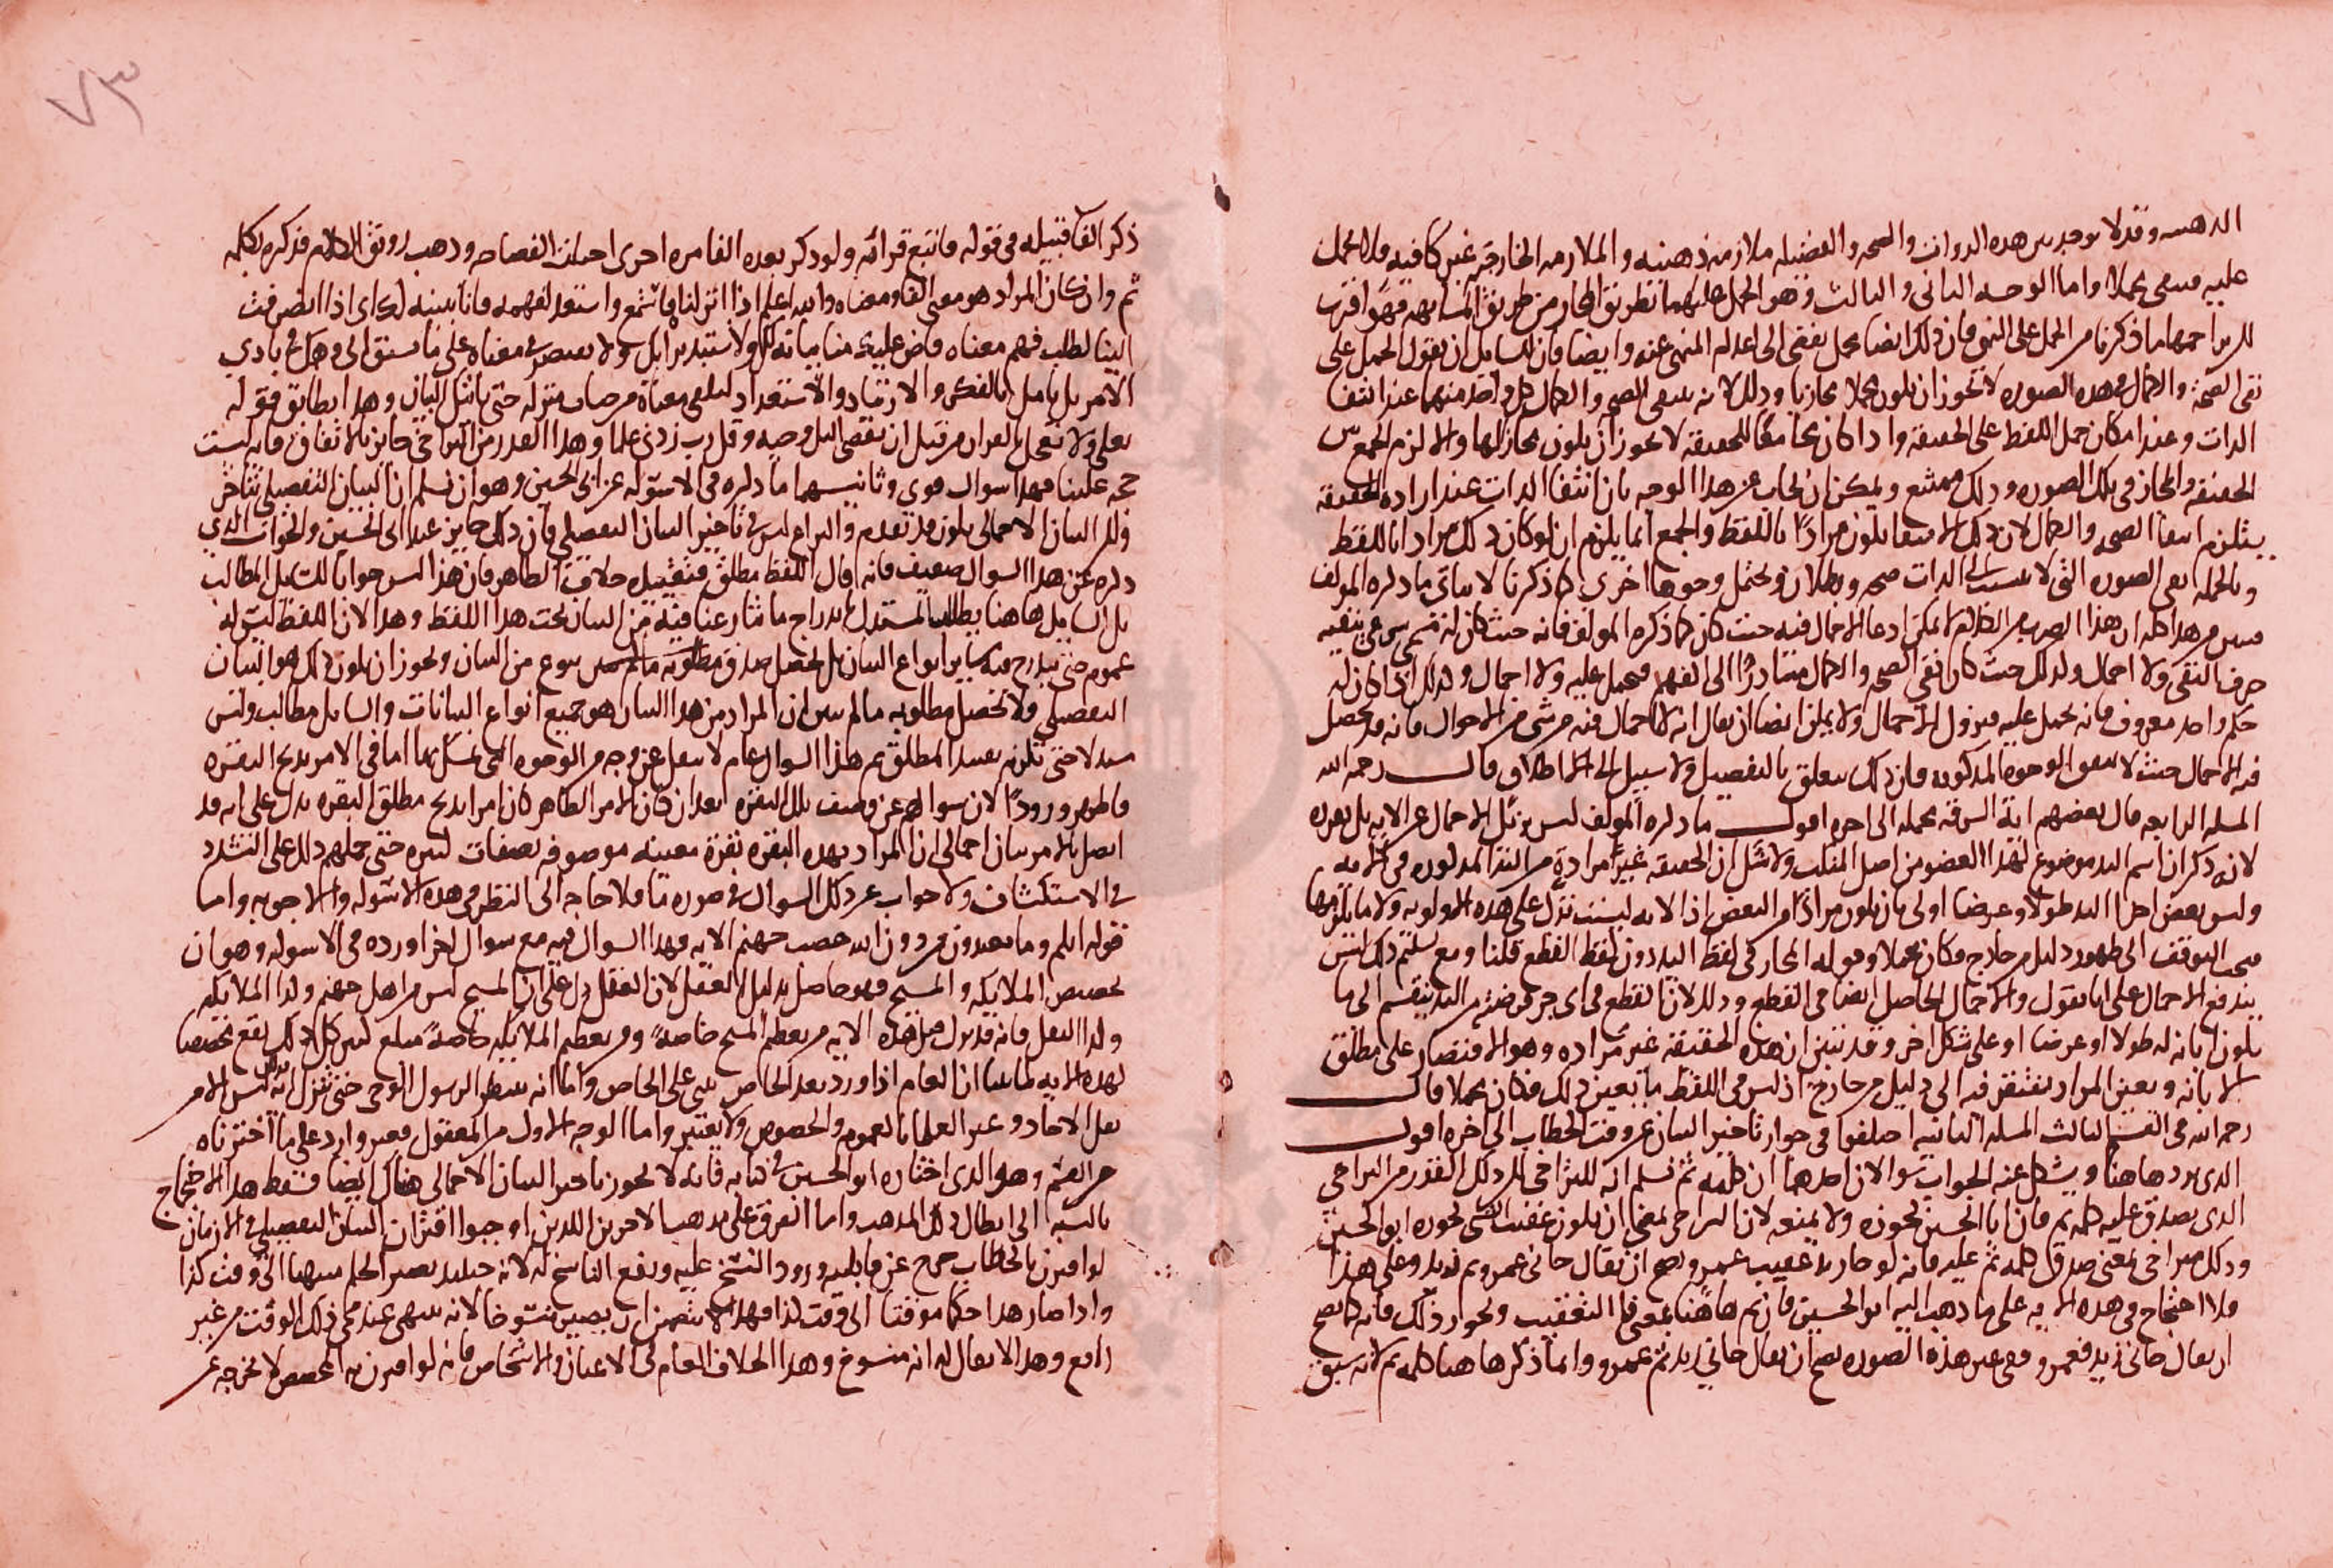 الذهنيه وقد لا توجد بين هذه الذوات والصحه والفضيله ملازمه ذهنيه والملازمه الخارجيه غير كافيه فلا يحمل
عليه فيبقى مجملا واما الوجه الثاني والثالث وهو الحمل عليهما بطريق المجاز من طريق المشابهه فهو اقرب
ما ذكرنا من الحمل على النهي فان ذلك ايضا محل يفضي الى اعدام المنهي عنه وايضا فان للسايل ان يقول الحمل على
نفي الصحه والكمال في هذه الصوره لا يجوز ان يكون مجملا مجازيا وذلك لانه ينتفي الصحه والكمال كل واحد منهما عند انتفا
الذات وعند امكان حمل اللفظ على الحقيقه واذا كان مجامعا للحقيقه لا يجوز ان يكون مجازا لها والا لزم الجمع بين
الحقيقه والمجاز في تلك الصوره وذلك ممتنع ويمكن ان يجاب عن هذا الوجه بان انتفا الذات عند اراده الحقيقه
يستلزم انتفا الصحه والكمال لان ذلك الانتفا يكون مرادا باللفظ والجمع انما يلزم ان لو كان ذلك مرادا باللفظ
وبالجمله ففي الصوره التي لا الذات صحه وبطلان وتحتمل وجوها اخرى كما ذكرنا لا يتاتى ما ذكره المولف
من هذا كله ان هذا الضرب من الكلام لا يمكن ادعا الاجمال فيه حيث كان كما ذكره المولف فانه حيث كان له مسمى شرعي ينفيه
حرف النفي ولا اجمال وكذلك حيث كان نفي الصحه والكمال متبادرا الى الفهم فيحمل عليه ولا اجمال وكذلك اذا كان له
حكم واحد معروف فانه يحمل عليه فيزول الاجمال ولا يمكن ايضا ان يقال انه لا اجمال فيه من شي من الاحوال فانه قد يحصل
فيه الاجمال حيث لا يتفق الوجوه المذكوره فاذن ذلك يتعلق بالتفصيل ولا سبيل الى الاطلاق قال رحمه الله
المسله الرابعه قال بعضهم اية السرقه مجمله الى اخره اقول ما ذكره المولف ليس يزيل الاجمال عن الايه بل يقرره
لانه ذكر ان اسم اليد موضوع لهذا العضو من اصل المنكب ولا شك ان الحقيقه غير مرادة من اليد المذكوره في الايه
وليس بعض اجزا اليد طولا وعرضا اولى بان يكون مرادا من البعض اذ الايه ليست تدل على هذه الاولويه ولا ما يلزمها
فيجب التوقف الى ظهور دليل من خارج فكان مجملا وقوله المجاز في لفظ اليد دون لفظ القطع قلنا ومع تسليم ذلك ليس
يندفع الاجمال على انا نقول والاجمال الحاصل ايضا في القطع وذلك لان القطع في اي جزء فرض من اليد ينقسم الى ما
يكون ابانه له طولا او عرضا او على شكل اخر وقد تبين ان هذه الحقيقه غير مراده وهو الاقتصار على مطلق
الابانه وتعين المراد يفتقر فيه الى دليل من خارج اذ ليس في اللفظ ما يعين ذلك فكان مجملا قال
رحمه الله في القسم الثالث المسله الثانيه اختلفوا في جواز تاخير البيان عن وقت الخطاب الى اخره اقول
الذي يرد هاهنا ويشكل عنه الجواب سوالان احدهما ان كلمه ثم نسلم انه للتراخي لكن ذلك القدر من التراخي
الذي يصدق عليه كلمه ثم فان ابا الحسين يجوزه ولا يمنعه لان التراخي بمعنى ان يكون عقيب الشي يجوزه ابو الحسين
وذلك تراخي بمعنى صدق كلمه ثم عليه فانه لو جاز عقيب عمرو يصح ان يقال جاني عمرو ثم زيد وعلى هذا
فلا احتجاج في هذه الايه على ما ذهب اليه ابو الحسين فان ثم هاهنا بمعنى فا التعقيب ويجوز ذلك فانه كما يصح
ان يقال جاني زيد فعمرو ففي عين هذه الصوره يصح ان يقال جاني زيد ثم عمرو وانما ذكر هاهنا كلمه ثم لانه سبق
٧٣
ذكر الفا قبيله في قوله فاتبع قرانه ولو ذكر بعده الفا مره اخرى اختلت الفصاحه وذهب رونق الكلام فذكره بكلمه
ثم وان كان المراد هو معنى الفا ومعناه والله اعلم اذا انزلناه فاستمع واستعد لفهمه فانا نبينه لك اي اذا انصرفت
الينا لطلب فهم معناه فاض عليك منا بيانه لك ولا تستبد برايك ولا تقتصر في معناه على ما يسبق الى وهمك في بادي
الامر بل تامل بالفكر والارتياد والاستعداد لتلقي معناه من صاحب منزله حتى ياتيك البيان وهذا يطابق قوله
تعالى ولا تعجل بالقران من قبل ان يقضى اليك وحيه وقل رب زدني علما وهذا القدر من التراخي جايز بالاتفاق فانه ليست
حجه علينا فهذا سوال قوي وثانيهما ما ذكره في الاسوله عن ابي الحسين وهو ان نسلم ان البيان التفصيلي يتاخر
ولكن البيان الاجمالي يكون قد تقدم والنزاع ليس في تاخير البيان التفصيلي فان ذلك جايز عند ابي الحسين والجواب الذي
ذكره عن هذا السوال ضعيف فانه قال اللفظ مطلق فتقييده خلاف الظاهر فان هذا ليس جوابا لك بل المطالب
بل السايل هاهنا يطلب المستدل باندراج ما تنازعنا فيه من البيان تحت هذا اللفظ وهذا لان اللفظ ليس له
عموم حتى يندرج فيه ساير انواع البيان بل يحصل صدق مطلوبه بنوع من البيان ويجوز ان يكون ذلك هو البيان
التفصيلي ولا تحصل مطلوبه ما لم يبين ان المراد من هذا البيان هو جميع انواع البيانات والسايل مطالب وليس
مستدلا حتى يكون تقييد المطلق ثم هذا السوال عام لا ينفك عن وجه من الوجوه التي تمسك بها اما في الامر بذبح البقره
فاظهر ورودا لان سوالهم عن وصف تلك البقره بعد ان كان الامر الظاهر كان امرا بذبح مطلق البقره يدل على انه قد
اتصل بالامر بيان اجمالي ان المراد بهذه البقره بقرة معينه موصوفه بصفات كثيره حتى حملهم ذلك على التشدد
في الاستكشاف ولا جواب عن ذلك السوال في صوره ما فلا حاجه الى النظر في هذه الاسوله والاجوبه واما
قوله انكم وما تعبدون من دون الله حصب جهنم الايه فهذا السوال فيه مع سوال اخر اورده في الاسوله وهو ان
تخصيص الملايكه والمسيح فهو حاصل بدليل العقل لان العقل دل على ان المسيح ليس من اهل جهنم وكذا الملايكه
وكذا النقل فانه قد نزل قبل هذه الايه من تعظيم المسيح خاصة ومن تعظيم الملايكه خاصة مبلغ كبير كل ذلك يقع تخصيصا
لهذه الايه لما بينا ان العام اذا ورد بعد الخاص بني على الخاص واما انه ينتظر الرسول الوحي حتى تنزل ليس الامر
نقل الاحاد وعبر العلما بالعموم والخصوص ولا يعتبر واما الوجه الاول من المعقول فغير وارد على ما اخترناه
من القسم وهو الذي اختاره ابو الحسين في كتابه فانه لا يجوز تاخير البيان الاجمالي هناك ايضا فسقط هذا الاحتجاج
بالنسبه الى ابطال ذلك المذهب واما الفرق على مذهب الاخرين الذين اوجبوا اقتران البيان التفصيلي في الازمان
لو اقترن بالخطاب خرج عن قابليه ورود النسخ عليه ورفع الناسخ له لانه حينئذ يصير الحكم منتهيا الى وقت كذا
واذا صار هذا حكما موقتا الى وقت كذا فهذا لا يتضمن ان يصير منسوخا لانه ينتهي عند مجي ذلك الوقت من غير
رافع وهذا لا يقال له انه منسوخ وهذا بخلاف العام في الاعيان والاشخاص فانه لو اقترن به المخصص لا يخرجه عن